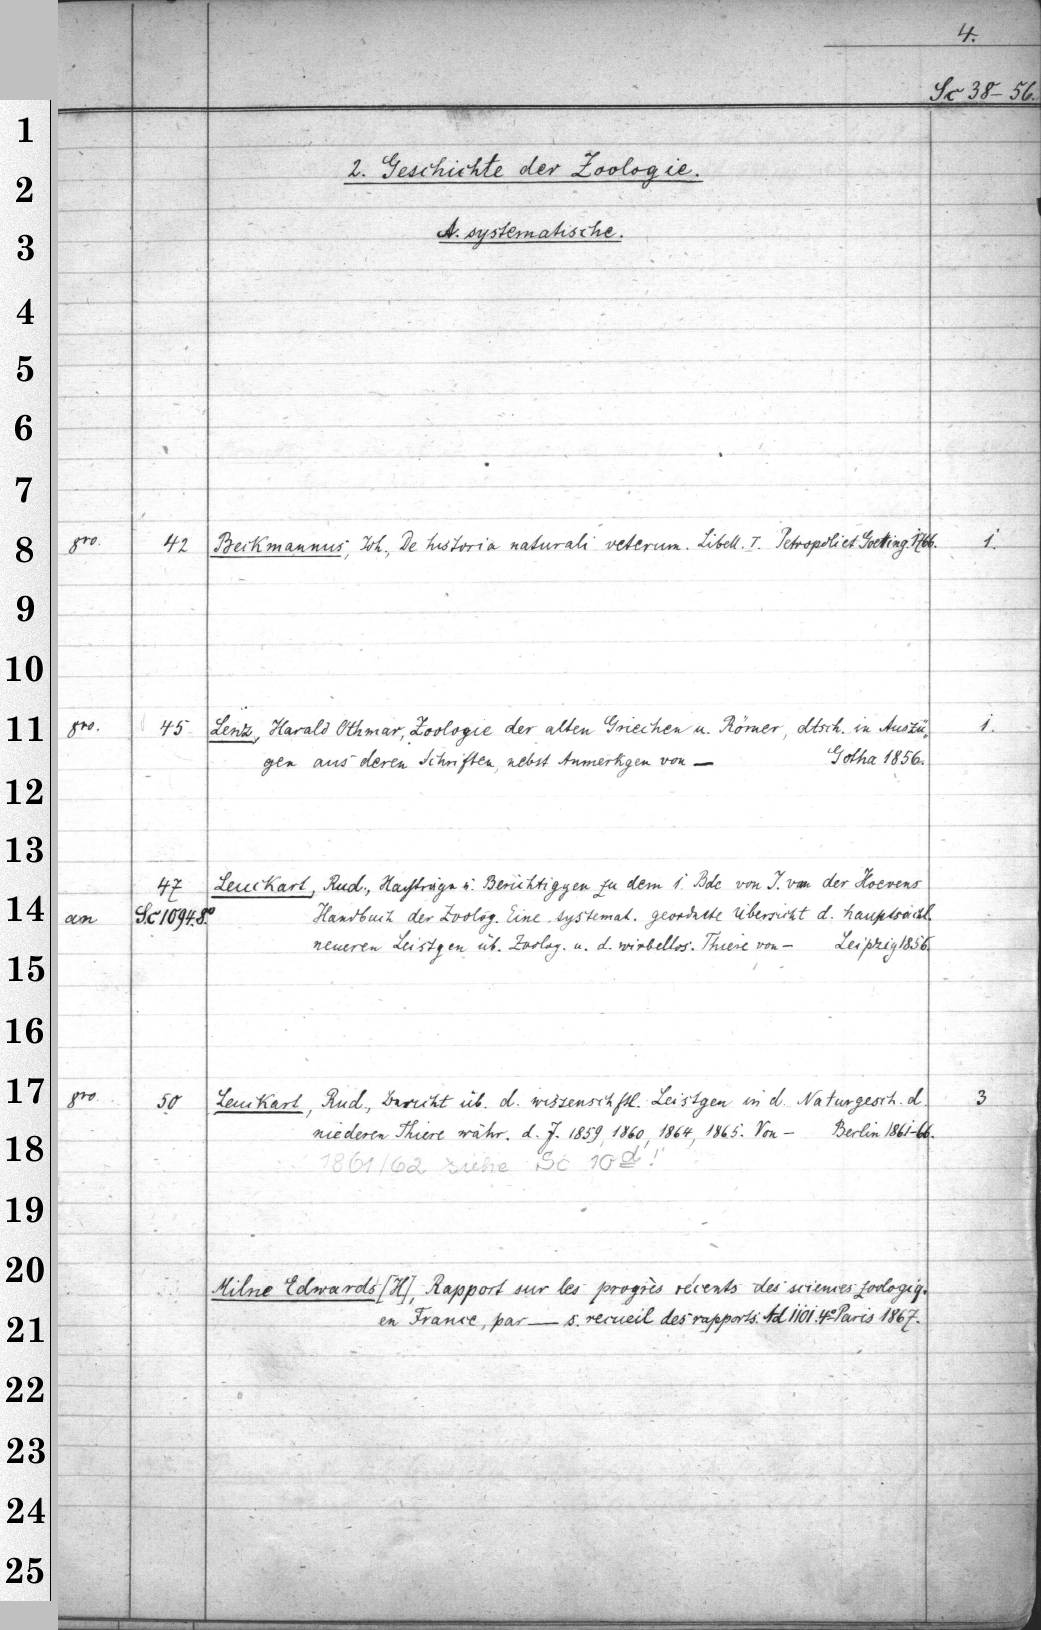 4.
Sc 38-56.
1
2. Geschichte der Zoologie.
2
A. systematische.
3
4
5
6
7
8 8vo. 42 Beckmannus, Joh., De historia naturali veterum. Libell. I. Petropoli et Goetting. 1766. 1.
9
10
11 8vo. 45 Lenz, Harald Othmar, Zoologie der alten Griechen u. Römer, dtsch. in Auszü-
gen aus deren Schriften, nebst Anmerkgen von — Gotha 1856.
1.
12
13
47 Leuckart, Rud., Nachträge u. Berichtiggen zu dem 1. Bde von J. van der Hoevens
14 an Sc 1094.8° Handbuch der Zoolog. Eine systemat. geordnete Übersicht d. hauptsächl.
neueren Leistgen üb. Zoolog. u. d. wirbellos. Thiere von — Leipzig 1856.
15
16
17 8vo. 50 Leuckart, Rud., Bericht üb. d. wissenschftl. Leistgen in d. Naturgesch. d. 3
niederen Thiere währ. d. J. 1859, 1860, 1864, 1865. Von — Berlin 1861-66.
18 1861/62 siehe Sc 10 d!
19
20
Milne Edwards [H], Rapport sur les progrès récents des sciences zoologiq.
21 en France, par — s. recueil des rapports. Ad 1101.4° Paris 1867.
22
23
24
25